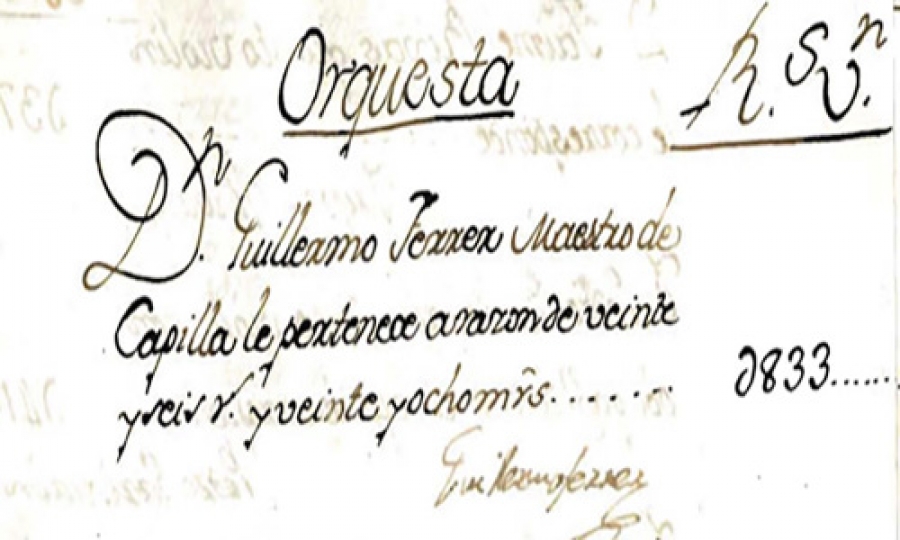 Orquesta R. S. V.n
D.n Guillermo Ferrer Maestro de
Capilla le pertenece a razon de veinte
y seis r. y veinte y ocho mrs....... 0833.......
Guillermo Ferrer